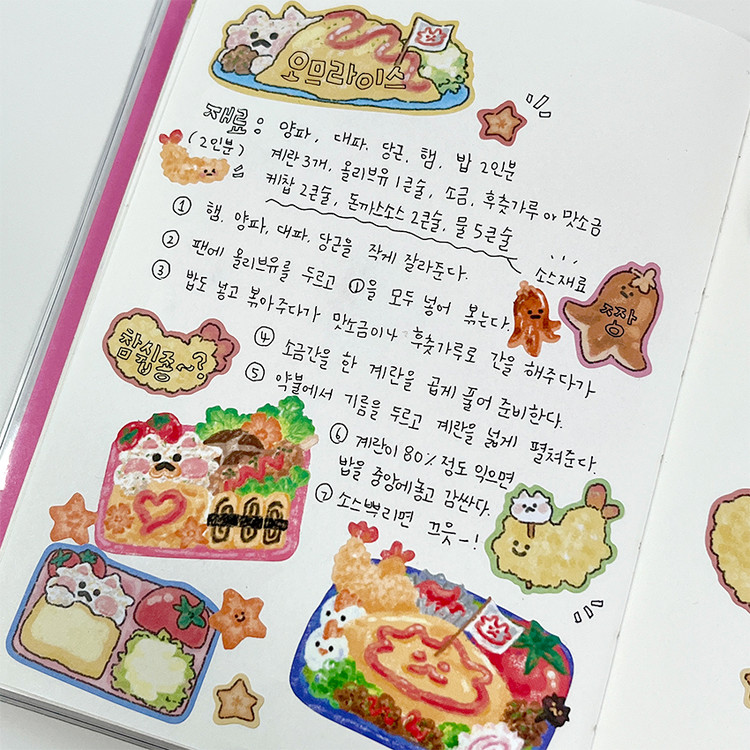 오므라이스
재료 : 양파, 대파, 당근, 햄, 밥 2인분
(2인분) 계란 3개, 올리브유 1큰술, 소금, 후춧가루 or 맛소금
케찹 2큰술, 돈까스소스 2큰술, 물 5큰술
소스재료
① 햄, 양파, 대파, 당근을 작게 잘라준다.
② 팬에 올리브유를 두르고 ①을 모두 넣어 볶는다.
③ 밥도 넣고 볶아주다가 맛소금이나 후춧가루로 간을 해주다가
짱
참쉽죵~?
④ 소금간을 한 계란을 곱게 풀어 준비한다.
⑤ 약불에서 기름을 두르고 계란을 넓게 펼쳐준다.
⑥ 계란이 80% 정도 익으면
밥을 중앙에놓고 감싼다.
⑦ 소스뿌리면 끄읏-!